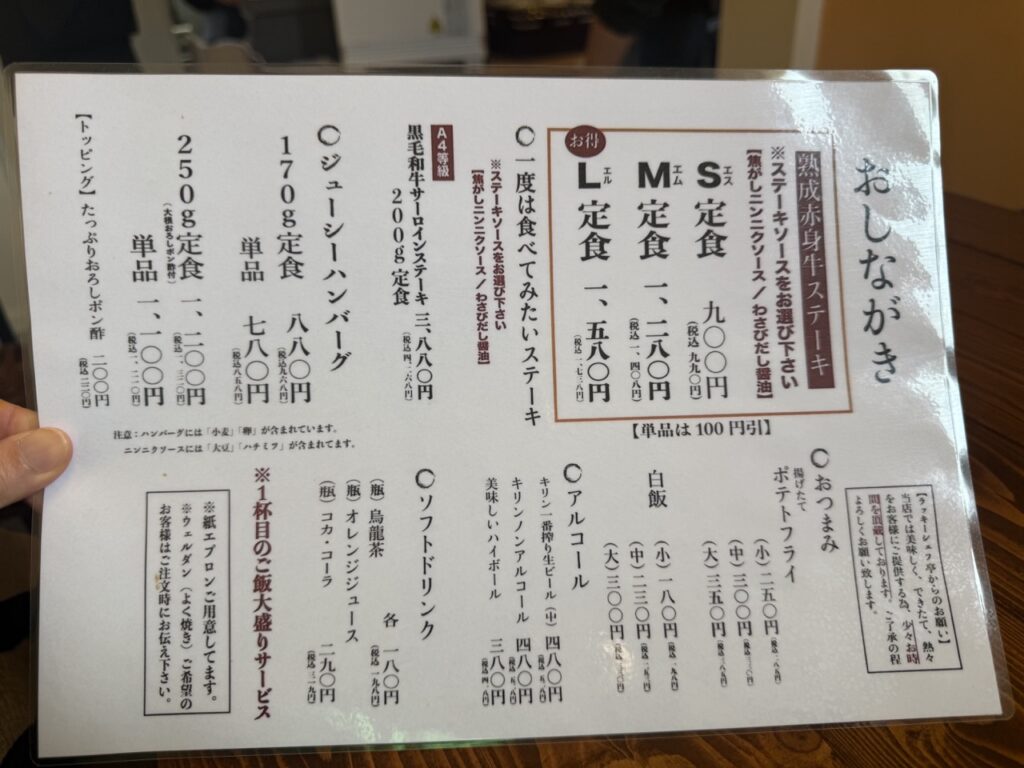 おしながき
熟成赤身牛ステーキ
※ステーキソースをお選び下さい
【焦がしニンニクソース／わさびだし醤油】
エス
S定食 九〇〇円
(税込 九九〇円)
エム
M定食 一、二八〇円
(税込 一、四〇八円)
お得
エル
L定食 一、五八〇円
(税込 一、七三八円)
【単品は100円引】
〇一度は食べてみたいステーキ
※ステーキソースをお選び下さい
【焦がしニンニクソース／わさびだし醤油】
A4等級
黒毛和牛サーロインステーキ 三、八八〇円
200g定食 (税込 四、二六八円)
〇ジューシーハンバーグ
170g定食 八八〇円
(税込九六八円)
単品 七八〇円
(税込八五八円)
250g定食 一、二〇〇円
(大根おろしポン酢付) (税込一、三二〇円)
単品 一、一〇〇円
(税込一、二一〇円)
【トッピング】たっぷりおろしポン酢 二〇〇円
(税込二二〇円)
注意：ハンバーグには「小麦」「卵」が含まれています。
ニンニクソースには「大豆」「ハチミツ」が含まれてます。
【ラッキーシェフ亭からのお願い】
当店では美味しく、できたて、熱々
をお客様にご提供する為、少々お時
間を頂戴しております。ご了承の程
よろしくお願い致します。
〇おつまみ
揚げたて
ポテトフライ
(小) 二五〇円
(税込 二七五円)
(中) 三〇〇円
(税込 三三〇円)
(大) 三五〇円
(税込 三八五円)
白飯
(小) 一八〇円
(税込 一九八円)
(中) 二三〇円
(税込 二五三円)
(大) 三〇〇円
(税込 三三〇円)
〇アルコール
キリン一番搾り生ビール(中) 四八〇円
(税込 五二八円)
キリンノンアルコール 四八〇円
(税込 五二八円)
美味しいハイボール 三八〇円
(税込 四一八円)
〇ソフトドリンク
(瓶) 烏龍茶 各 一八〇円
(税込 一九八円)
(瓶) オレンジジュース
(瓶) コカ・コーラ 二九〇円
(税込 三一九円)
※1杯目のご飯大盛りサービス
※紙エプロンご用意してます。
※ウェルダン（よく焼き）ご希望の
お客様はご注文時にお伝え下さい。